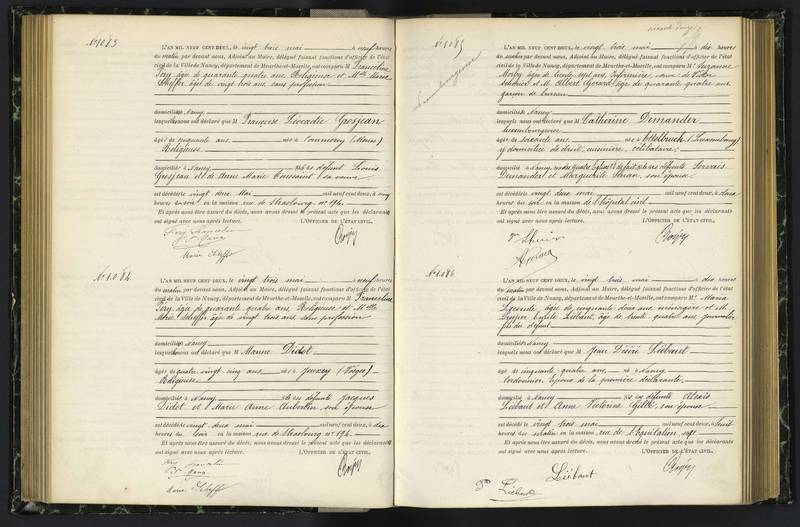 N° 1083
L'AN MIL NEUF CENT DEUX, le vingt trois mai à neuf heures
du matin par devant nous, Adjoint au Maire, délégué faisant fonctions d'officier de l'état
civil de la Ville de Nancy, département de Meurthe-et-Moselle, ont comparu M Franceline
Fery, âgée de quarante quatre ans Religieuse et Mlle Marie
Scheffer, âgée de vingt trois ans sans profession
domiciliés à Nancy
lesquels nous ont déclaré que M Françoise Léocadie Grosjean
âgée de cinquante ans née à Commercy (Meuse)
Religieuse
domiciliée à Nancy fille de défunt Louis
Grosjean et de Anne Marie Toussaint sa veuve
est décédée le vingt deux Mai mil neuf cent deux, à cinq
heures du soir en la maison rue de Strasbourg n° 194
Et après nous être assuré du décès, nous avons dressé le présent acte que les déclarants
ont signé avec nous après lecture. L'OFFICIER DE L'ÉTAT CIVIL,
Marie Scheffer
N° 1084
L'AN MIL NEUF CENT DEUX, le vingt trois mai à neuf heures
du matin par devant nous, Adjoint au Maire, délégué faisant fonctions d'officier de l'état
civil de la Ville de Nancy, département de Meurthe-et-Moselle, ont comparu M Franceline
Fery, âgée de quarante quatre ans, Religieuse et Mlle
Marie Scheffer, âgée de vingt trois ans sans profession
domiciliés à Nancy
lesquels nous ont déclaré que M Marie Didot
âgée de quatre vingt cinq ans née à Juxey (Vosges)
Religieuse
domiciliée à Nancy fille de défunts Jacques
Didot et Marie Anne Aubertin, son épouse
est décédée le vingt deux mai mil neuf cent deux, à dix
heures du soir en la maison rue de Strasbourg n° 194
Et après nous être assuré du décès, nous avons dressé le présent acte que les déclarants
ont signé avec nous après lecture. L'OFFICIER DE L'ÉTAT CIVIL,
Marie Scheffer
N° 1085
Luxembourgeoise
L'AN MIL NEUF CENT DEUX, le vingt trois mai à dix heures
du matin par devant nous, Adjoint au Maire, délégué faisant fonctions d'officier de l'état
civil de la Ville de Nancy, département de Meurthe-et-Moselle, ont comparu Me Suzanne
âgée de trente sept ans Infirmière, veuve de Victor
et M. Albert Gérard âgé de quarante quatre ans
garçon de bureau
domiciliés à Nancy
lesquels nous ont déclaré que M Catherine Demander
luxembourgeoise
âgée de soixante ans née à Ettelbruck (Luxembourg)
y domiciliée de droit, cuisinière, célibataire
domiciliée à Nancy de fait fille de défunts Servais
Demander et Marguerite son épouse
est décédée le vingt deux mai mil neuf cent deux, à deux
heures du soir en la maison de l'Hôpital civil
Et après nous être assuré du décès, nous avons dressé le présent acte que les déclarants
ont signé avec nous après lecture. L'OFFICIER DE L'ÉTAT CIVIL,
N° 1086
L'AN MIL NEUF CENT DEUX, le vingt trois mai à dix heures
du matin par devant nous, Adjoint au Maire, délégué faisant fonctions d'officier de l'état
civil de la Ville de Nancy, département de Meurthe-et-Moselle, ont comparu Me Maria
Lecomte, âgée de cinquante deux ans, ménagère et M.
Emile Liébaut, âgé de trente quatre ans journalier
fils du défunt
domiciliés à Nancy
lesquels nous ont déclaré que M Jean Désiré Liébaut
âgé de cinquante quatre ans né à Nancy
cordonnier, époux de la première déclarante,
domicilié à Nancy fils de défunts Alexis
Liébaut et Anne Victorine son épouse
est décédé le vingt trois mai mil neuf cent deux, à huit
heures du matin en la maison, rue de l'Equitation
Et après nous être assuré du décès, nous avons dressé le présent acte que les déclarants
ont signé avec nous après lecture. L'OFFICIER DE L'ÉTAT CIVIL,
Liébaut
Liébaut